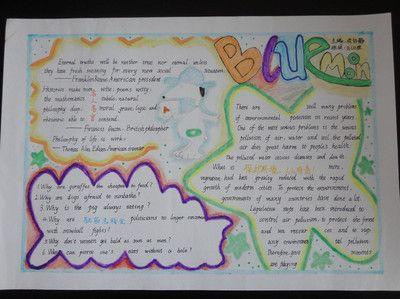 Blue Moon
Eternal truths will be neither true nor eternal unless
they have fresh meaning for every new social situation.
—— Franklin Roosevelt American president
Histories make men wise; poems witty;
the mathematics subtle; natural
philosophy deep; moral grave; logic and
rhetoric able to contend.
—— Francis Bacon British philosopher
Philosophy of life is work.
—— Thomas Alva Edison American inventor
1. Why are giraffes the cheapest to feed?
2. Why are dogs afraid to sunbathe?
3. Why is the pig always eating?
4. Why are politicians no longer concerned
with snowball fights?
5. Why don't women get bald as soon as men?
6. Who can pierce one's ears without a hole?
There are still many problems
of environmental protection in recent years.
One of the most serious problems is the serious
pollution of air, water and soil. the polluted
air does great harm to people's health.
The polluted water causes diseases and death.
What is more,
vegetation had been greatly reduced with the rapid
growth of modern cities. To protect the environment,
governments of many countries have done a lot.
Legislative steps have been introduced to
control air pollution, to protect the forest
and sea resources and to stop
any environmental pollution.
Therefore, governments
are playing